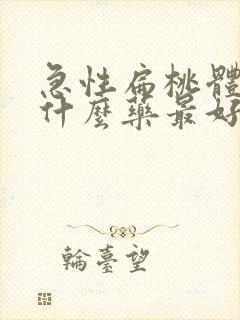 急性扁桃體
什麼藥最好
輪臺望